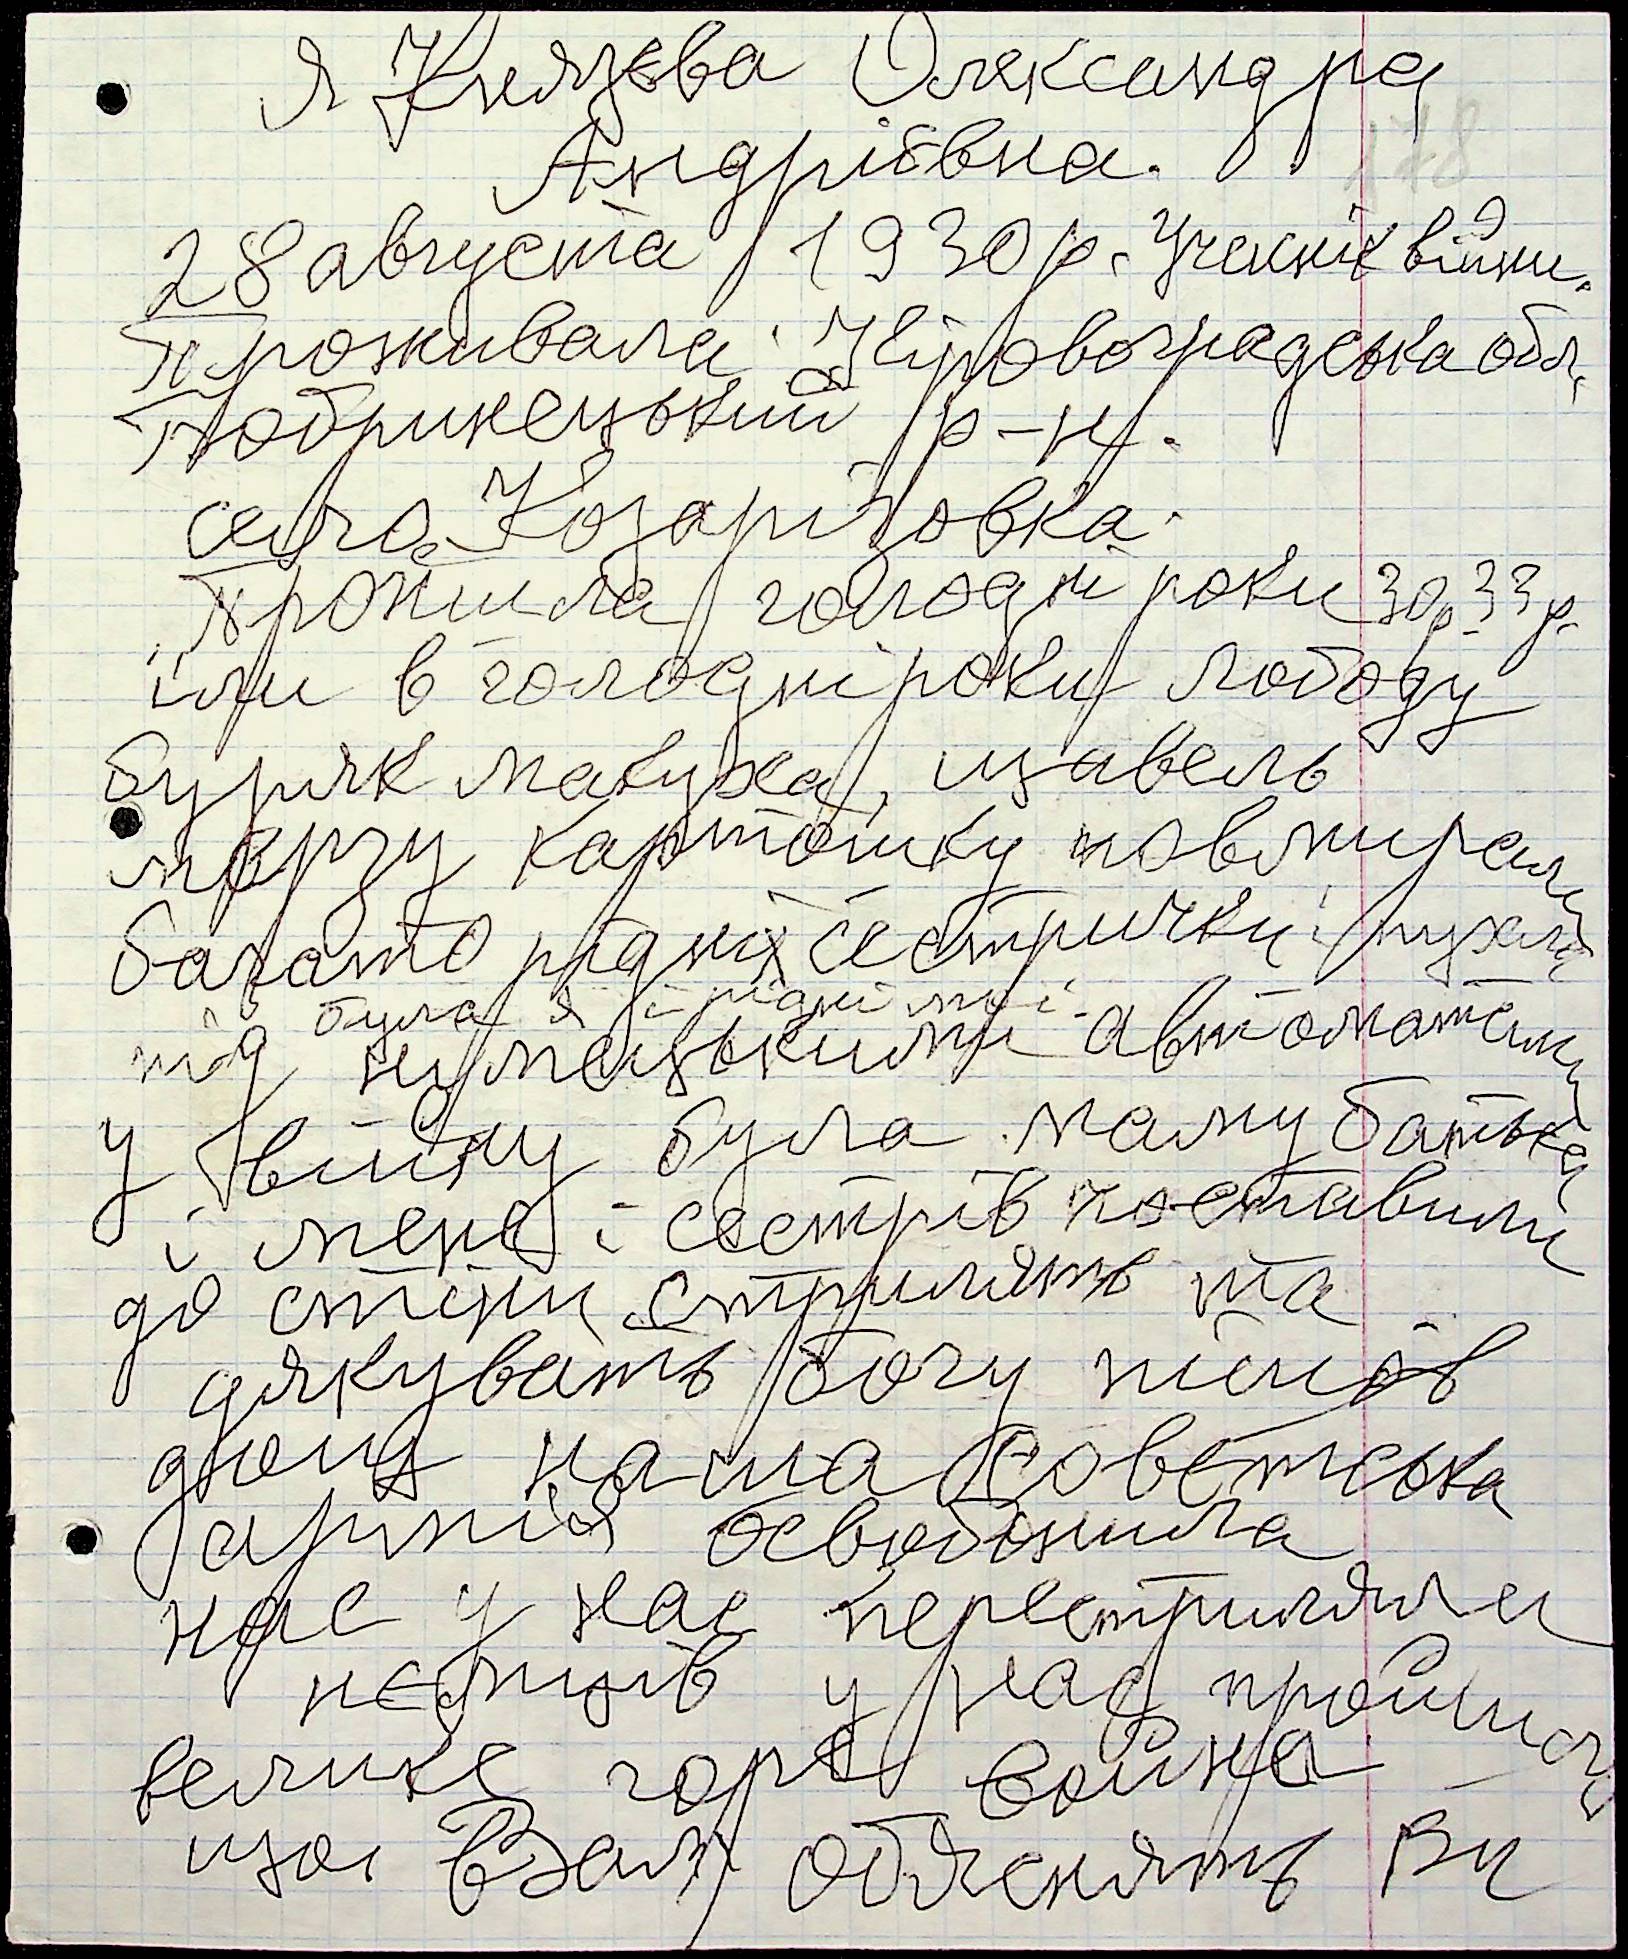 Я Князєва Олександра
Андріївна.
178
28 августа 1930 р. Учеснік війни.
Проживала: Кіровоградська обл,
Бобринецький р-н.
село. Козарізовка.
Пройшла голодні роки 30р. 33 р.
їли в голодні роки лободу
буряк макуха, щавель
мерзу картошку повмирали
багато рідних сестрички і пухла
була я і рідні мої.
під нимецькими автоматами
у війну була маму батька
і мене і сестрів поставили
до стіни стрилять та
дякувать богу пішов
дощ наша Советська
армія освободила
нас у нас перестриляли
немців у нас пройшло
велике горе война
що Вам обяснять Ви